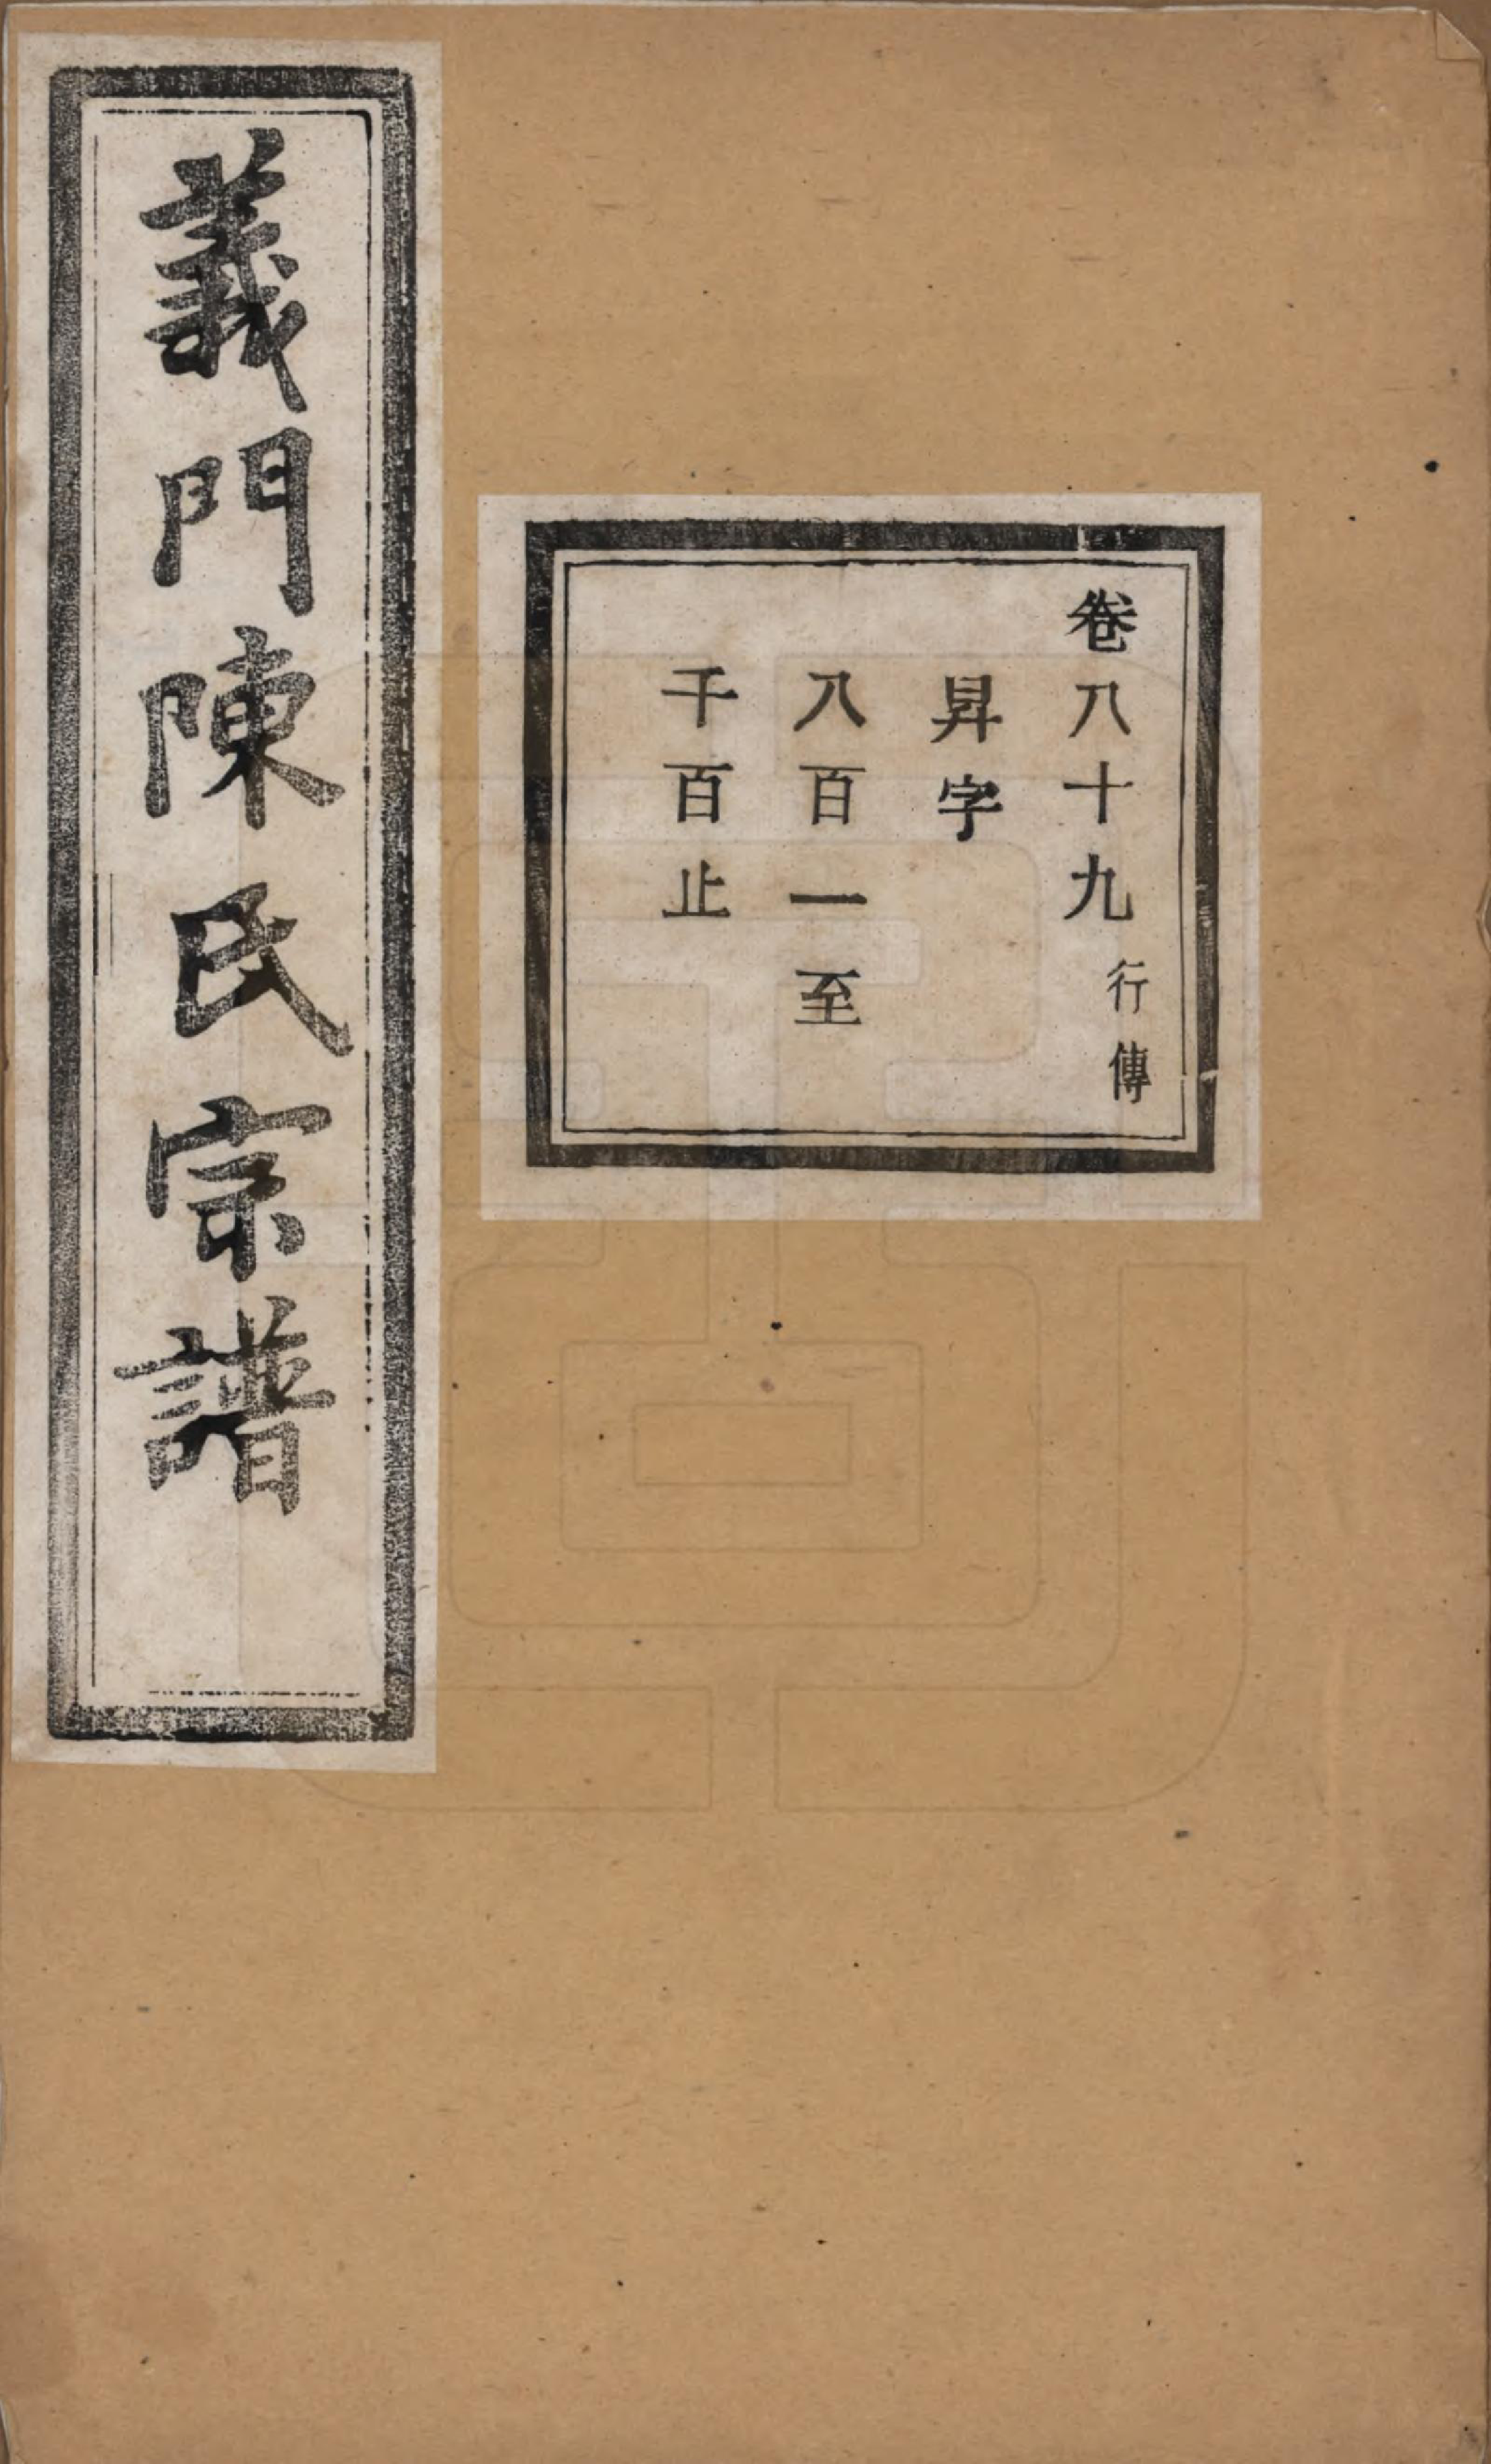 義門陳氏宗譜
卷八十九行傳
昇字
八百一至
千百止